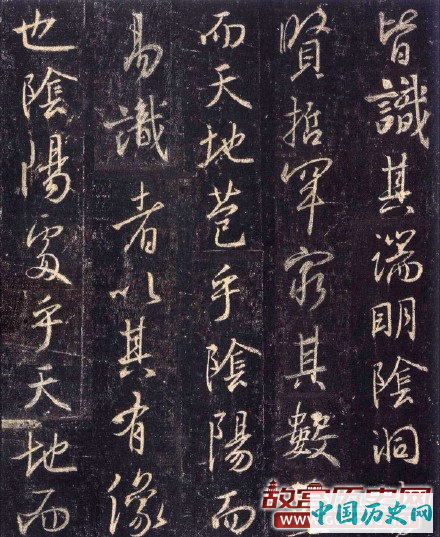 皆識其端明陰洞陽
賢哲罕窮其數然
而天地苞乎陰陽而
易識者以其有像
也陰陽處乎天地而
故宫历史网
中国历史网